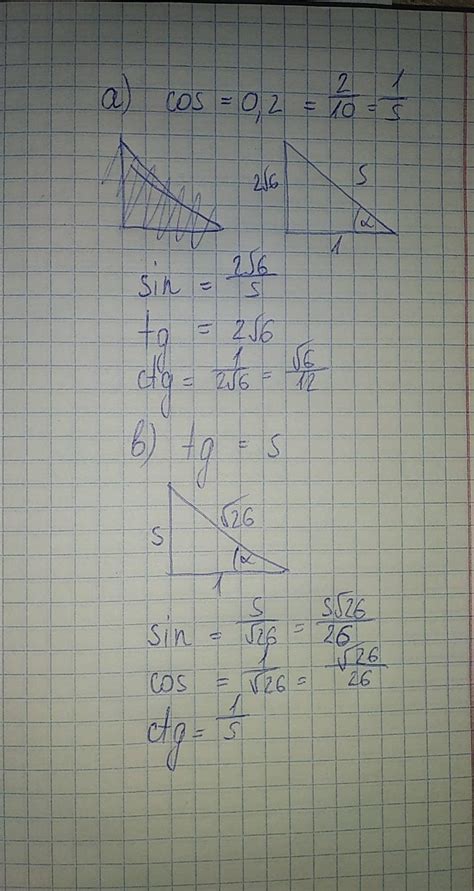 a) cos = 0,2 = 2/10 = 1/5
2√6 5
α
1
sin = 2√6/5
tg = 2√6
ctg = 1/2√6 = √6/12
b) tg = 5
5 √26
α
1
sin = 5/√26 = 5√26/26
cos = 1/√26 = √26/26
ctg = 1/5